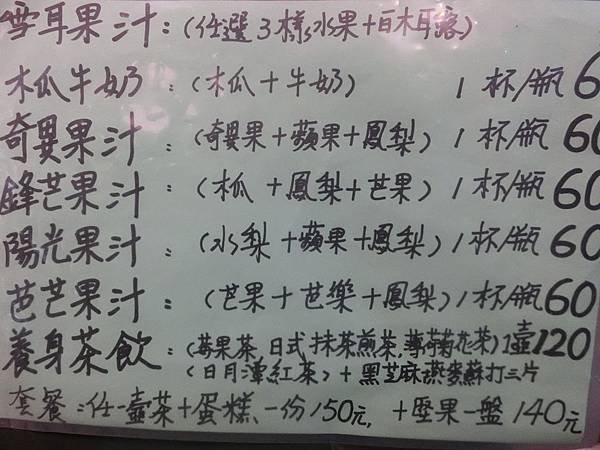 雪耳果汁:(任選3樣水果+白木耳露)
木瓜牛奶:(木瓜+牛奶) 1杯/瓶6
奇異果汁:(奇異果+蘋果+鳳梨)1杯/瓶60
鋒芒果汁:(木瓜+鳳梨+芒果)1杯/瓶60
陽光果汁:(水梨+蘋果+鳳梨)1杯/瓶60
芭芒果汁:(芒果+芭樂+鳳梨)1杯/瓶60
養身茶飲:(莓果茶.日式抹茶煎茶,薄荷菊花茶)1壺120
(日月潭紅茶)+黑芝麻燕麥蘇打三片
套餐:任一壺茶+蛋糕、一份150元,+堅果一盤140元